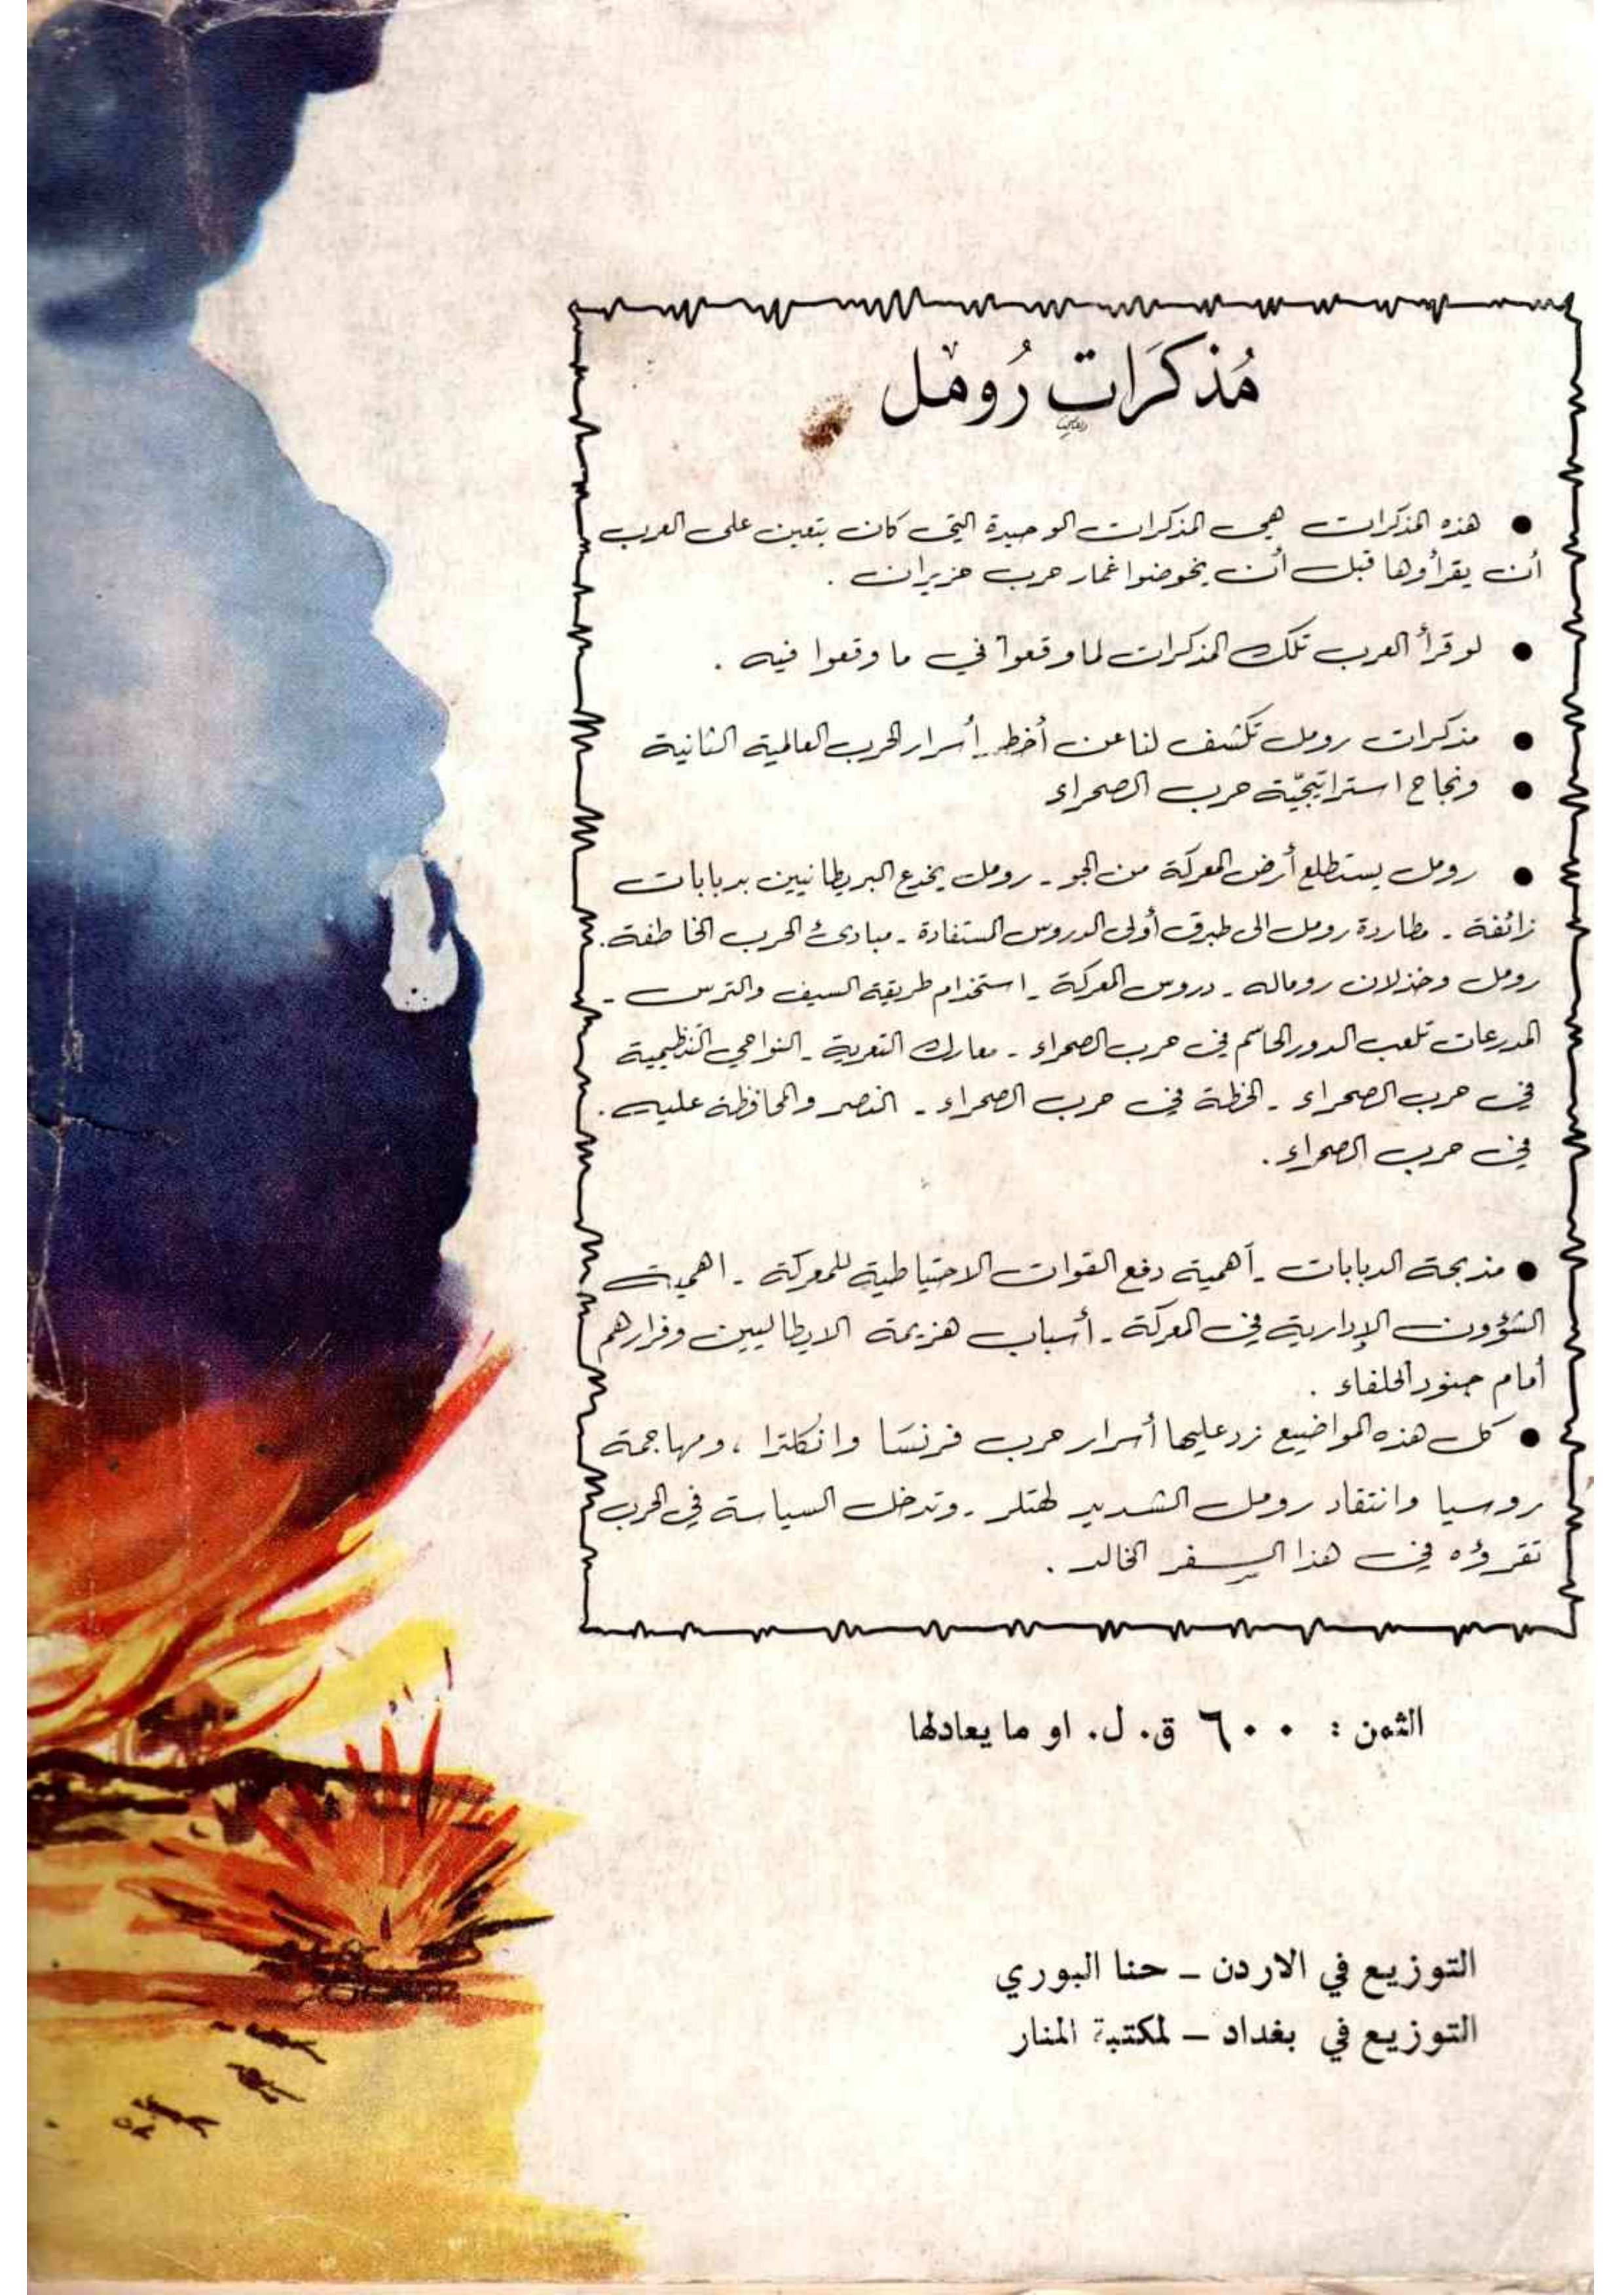 مُذكَرَات رُومل
● هذه المذكرات هي المذكرات الوحيدة التي كان يتعين على العرب
أن يقرأوها قبل أن يخوضوا غمار حرب حزيران .
● لو قرأ العرب تلك المذكرات لما وقعوا في ما وقعوا فيه .
● مذكرات رومل تكشف لنا عن أخطر أسرار الحرب العالمية الثانية
● ونجاح استراتيجيّة حرب الصحراء
● رومل يستطلع أرض المعركة من الجو - رومل يخدع البريطانيين بدبابات
زائفة - مطاردة رومل الى طبرق أولى الدروس المستفادة - مبادئ الحرب الخاطفة .
رومل وخذلان روماله - دروس المعركة - استخدام طريقة السيف والترس -
المدرعات تلعب الدور الحاسم في حرب الصحراء - معارك التعرية - النواحي التنظيمية
في حرب الصحراء - الخطة في حرب الصحراء - النصر والمحافظة عليه .
في حرب الصحراء .
● مذبحة الدبابات - أهمية دفع القوات الاحتياطية للمعركة - اهمية
الشؤون الإدارية في المعركة - أسباب هزيمة الايطاليين وفرارهم
أمام جنود الحلفاء .
● كل هذه المواضيع زد عليها أسرار حرب فرنسَا وانكلترا ، ومهاجمة
روسيا وانتقاد رومل الشديد لهتلر - وتدخل السياسة في الحرب
تقرؤه في هذا السِفر الخالد .
الثمن : ٦٠٠ ق. ل. او ما يعادلها
التوزيع في الاردن – حنا البوري
التوزيع في بغداد – لمكتبة المنار